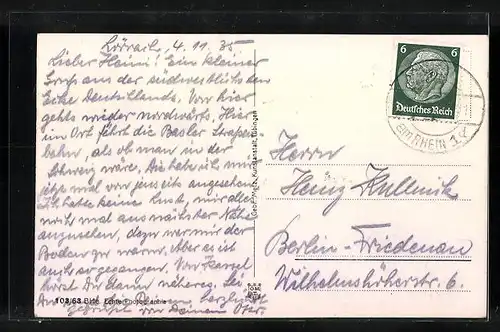 Lörrach, 4. 11. 35
Lieber Heini! Ein kleiner
Gruß aus der südwestlichsten
Ecke Deutschlands. Von hier
gehts wieder nordwärts. Hier
im Ort fährt die Basler Straßen
bahn, als ob man in der
Schweiz wäre. Die habe ich mir
jetzt mal von jenseits angesehen.
Ich hatte keine Lust, mir alles
noch mal aus nächster Nähe
anzusehen, dazu war mir der
Boden zu warm. Aber es ist
auch so gegangen. Von Kassel
hörst Du dann näheres. Sei
Du herzlichst
gegrüßt von Deinem Otto.
103/63
Gebr. Metz, Kunstanstalt, Tübingen
6 6
Deutsches Reich
RHEIN
Herrn
Heinz Kullnik
Berlin-Friedenau
Wilhelmshöherstr. 6.